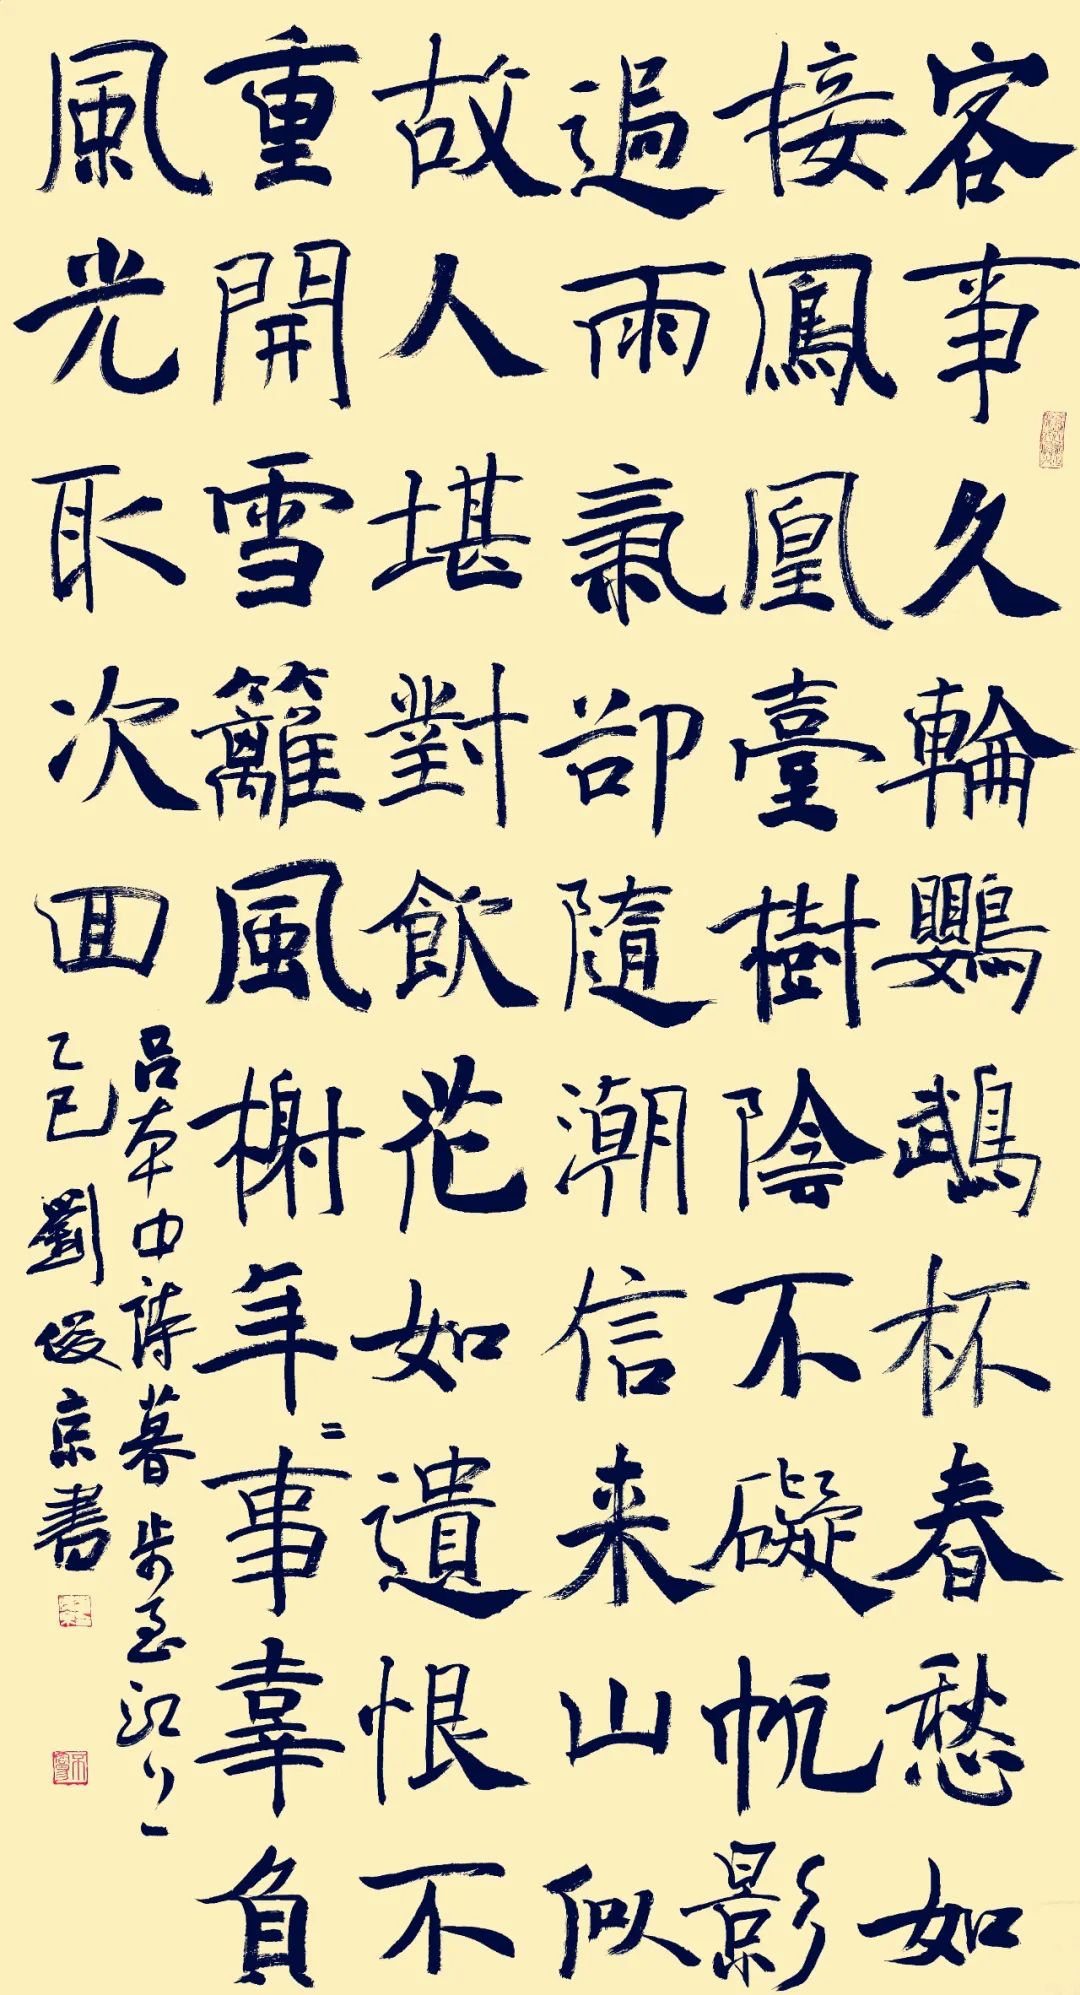 客事久輪鸚鵡杯春愁如
接鳳凰臺樹陰不礙帆影
過雨氣卻隨潮信来山似
故人堪對飲花如遺恨不
重開雪籬風榭年〻事辜負
風光取次回
吕本中詩暮步至江上
乙巳劉俊京書